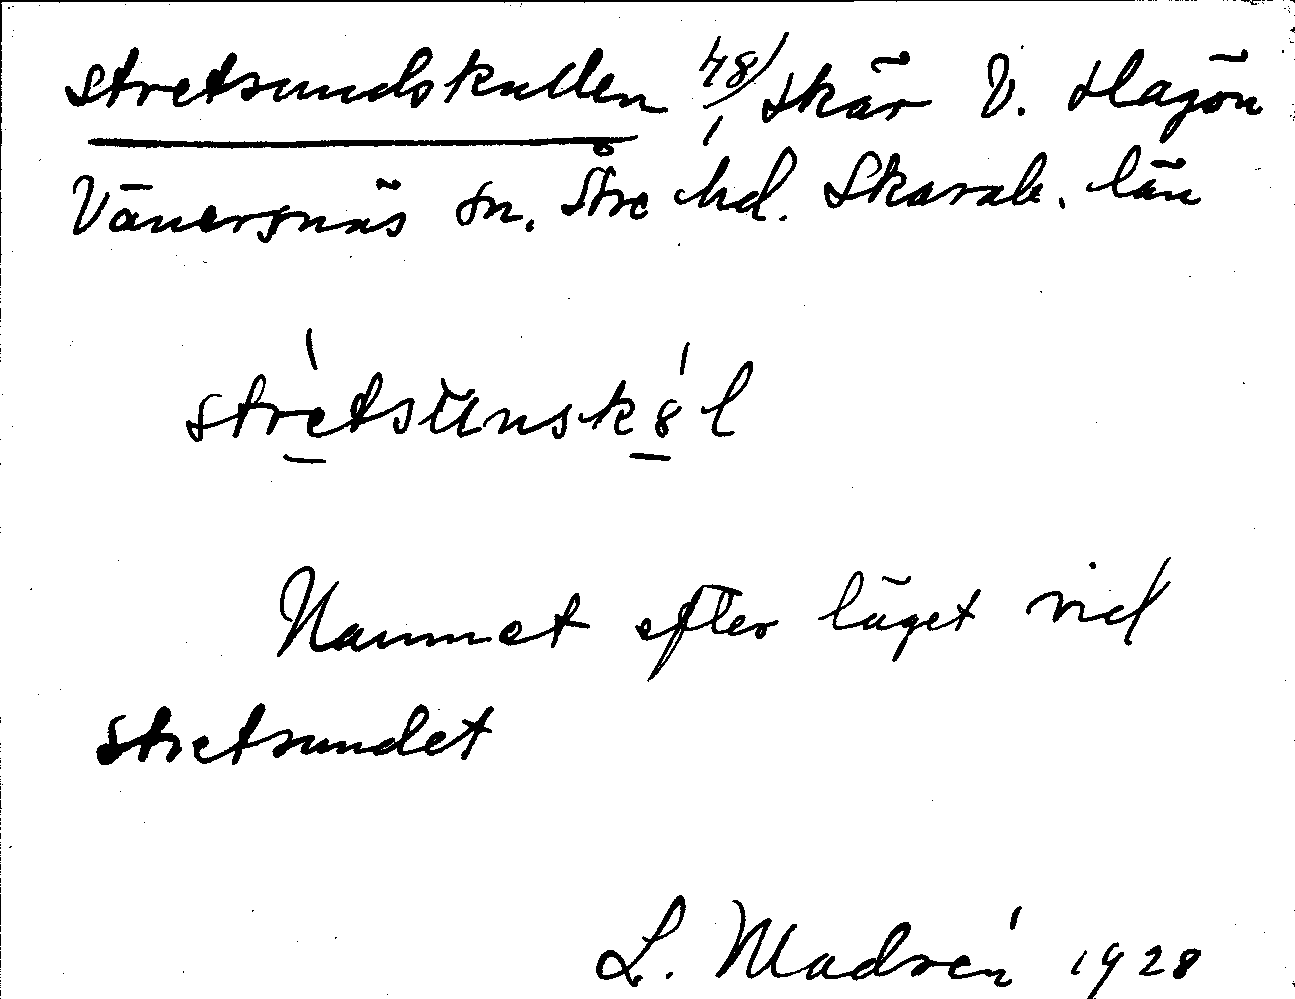 Stretsundskullen 48/ skär V. Hagön
Vänersnäs sn. Åse hd. Skarab. län
Namnet efter läget vid
Stretsundet
L. Madrén 1928